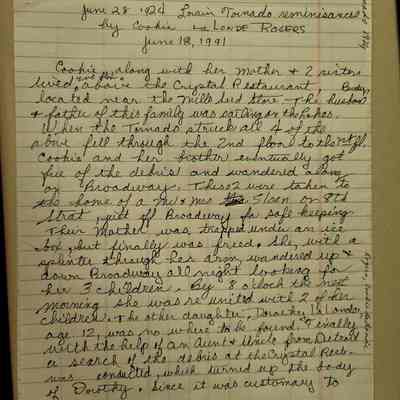 June 28 1924 Lorain Tornado reminisances
by Cookie LaLONDE ROGERS
June 18, 1991
Cookie, along with her Mother & 2 sisters
lived above the Crystal Restaurant,
located near the Mills Seed Store. The husband
& father of this family was sailing on the Lakes.
When the Tornado struck all 4 of the
above fell through the 2nd floor to the
Cookie and her brother eventually got
free of the debris and wandered along
on Broadway. These 2 were taken to
the home of a Mr & Mrs Olsen on 8th
Street, just of Broadway for safe keeping
Their Mother was trapped under an ice
box, but finally was freed. She, with a
splinter through her arm, wandered up &
down Broadway all night looking for
her 3 children. By 8 o'clock the next
morning she was reunited with 2 of her
children. The other daughter, Dorothy LaLonde,
age 12, was no where to be found. Finally
with the help of an Aunt & Uncle from Detroit
a search of the debris at the Crystal Rest.
was conducted, which turned up the body
of Dorothy. Since it was customary to